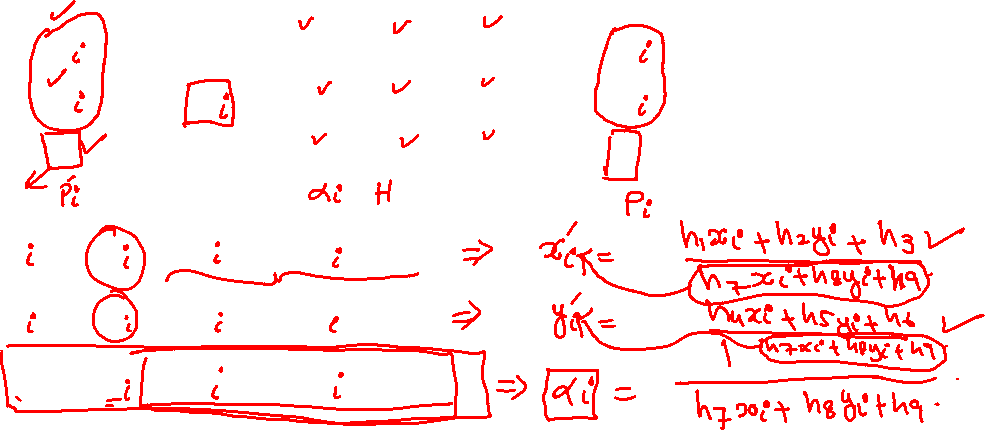 ✓ ✓ ✓ ✓
i i
✓ i ✓ ✓ ✓
i i i
✓ ✓ ✓ ✓
P'i αi H Pi
i i i i ⇒ x'i = h1xi + h2yi + h3 ✓
h7xi + h8yi + h9
i i i ⇒ y'i = h4xi + h5yi + h6 ✓
h7xi + h8yi + h9
i i i ⇒ αi = 1
h7xi + h8yi + h9